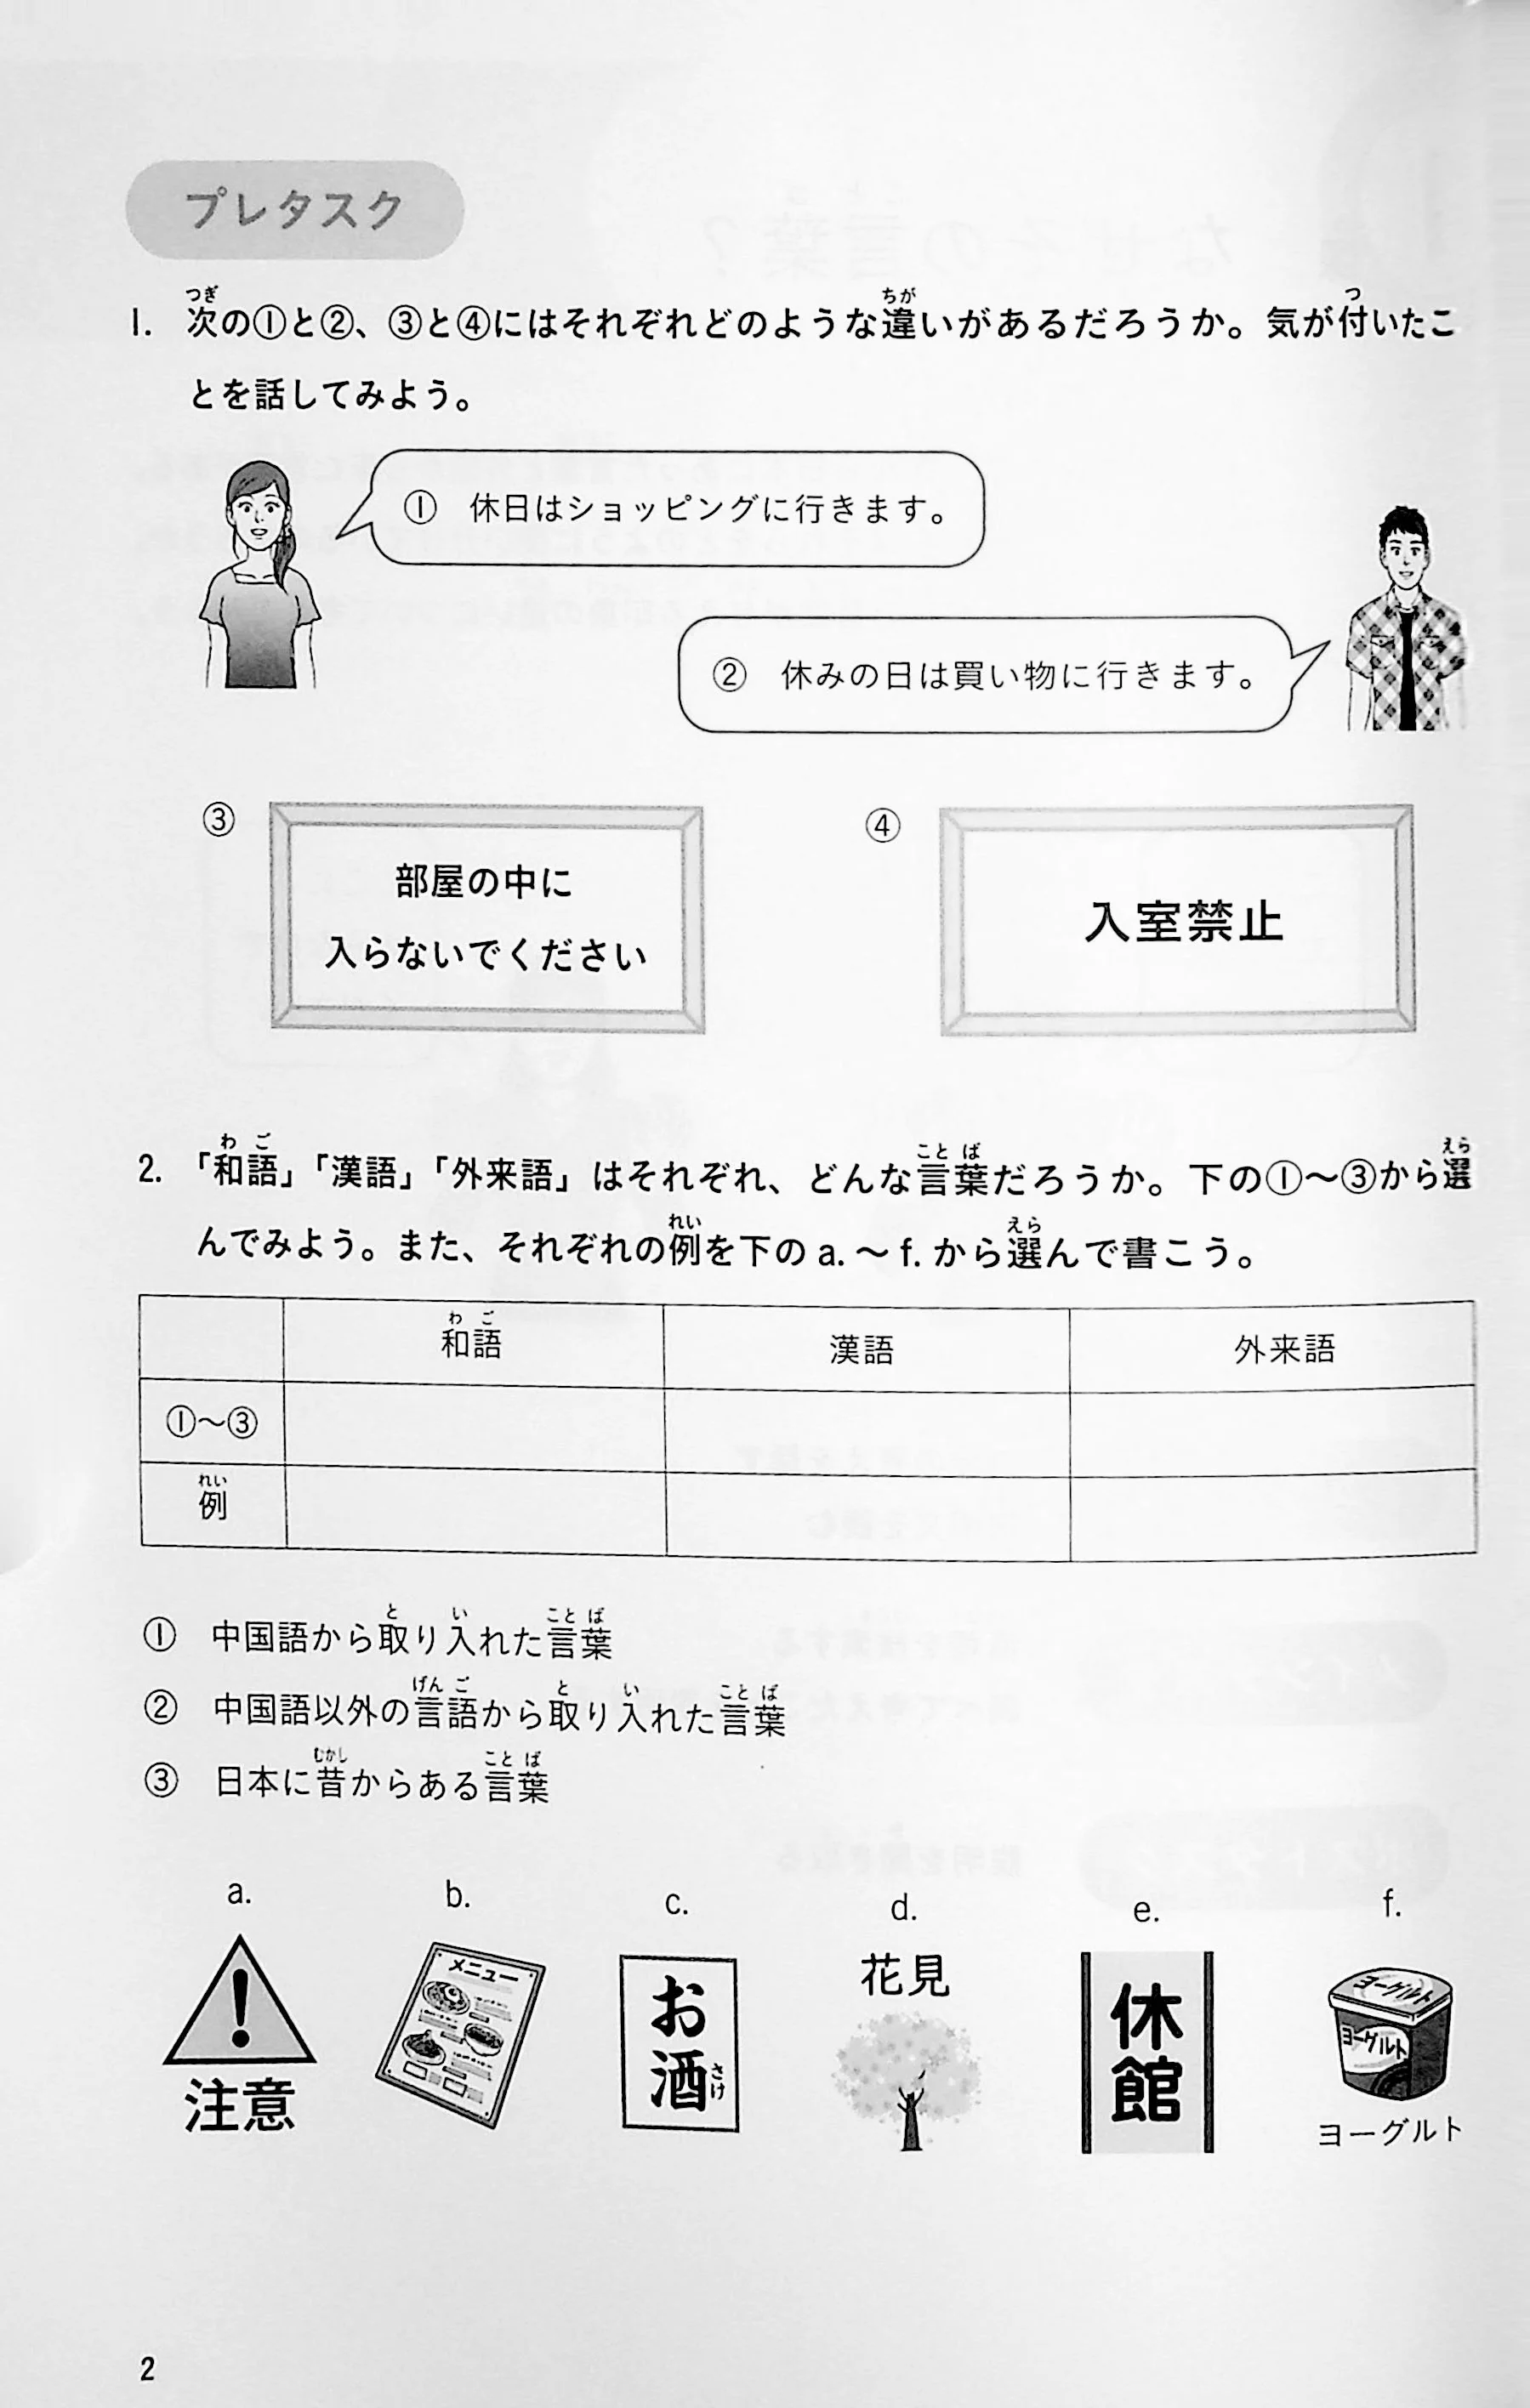 プレタスク
1. 次の①と②、③と④にはそれぞれどのような違いがあるだろうか。気が付いたこ
とを話してみよう。
① 休日はショッピングに行きます。
② 休みの日は買い物に行きます。
③
部屋の中に
入らないでください
④
入室禁止
2. 「和語」「漢語」「外来語」はそれぞれ、どんな言葉だろうか。下の①～③から選
んでみよう。また、それぞれの例を下の a. ～ f. から選んで書こう。
和語 漢語 外来語
①～③
例
① 中国語から取り入れた言葉
② 中国語以外の言語から取り入れた言葉
③ 日本に昔からある言葉
a. b. c. d. e. f.
注意
メニュー
お酒
花見
休館
ヨーグルト
ヨーグルト
ヨーグルト
2